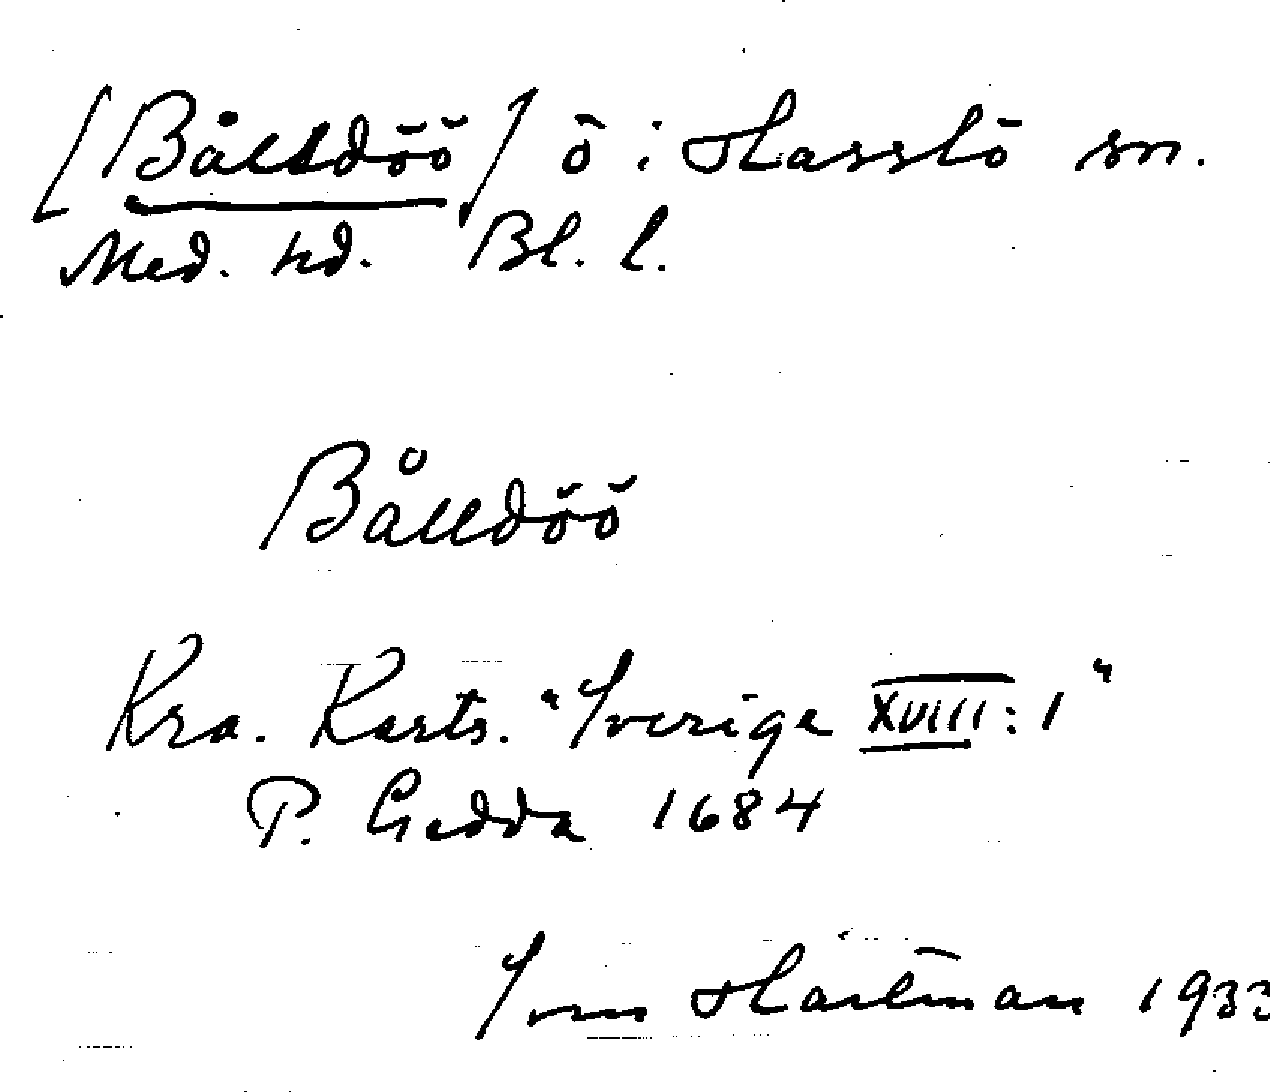 [Bålldöö] ö i Hasslö sn.
Med. hd. Bl. l.
Bålldöö
Kra. Karts. "Sverige XVIII:1"
P. Gedda 1684
Sven Hartman 1933